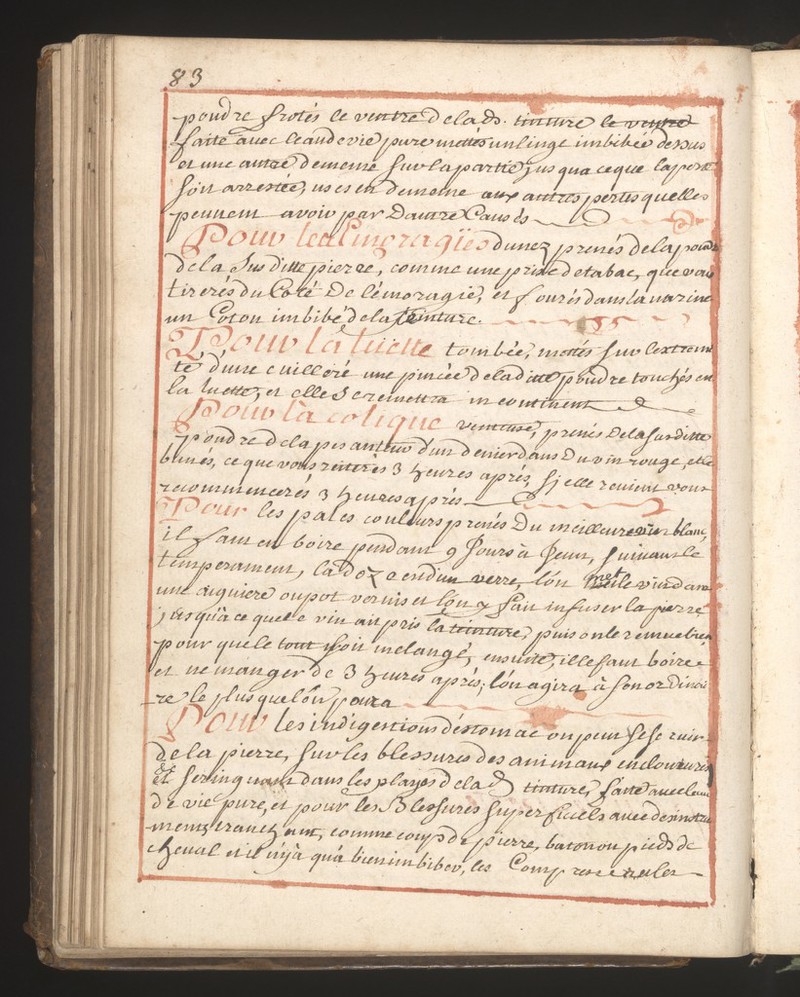 83
poudre frotés le ventre de la d. tinture le ventre
faite avec leaudevie pure mettés un linge imbibée dessus
et une autre de meme sur la partie, jusqua ceque laperte
soit arrestée, uses en de meme aux autres pertes quelles
peuvent avoir par Dautre Causés
Pour les Émoragiës dunez prenés dela poudre
dela Susditte pierre, comme une prise de tabac, que vous
tirerés du Coté De lémoragie, et fourés dans la narine
un Coton imbibé dela teinture.
Pour la luette tombée, mettés sur lextremi
té d'une cuilleré une pincée deladitte poudre touchés en
la luette, et elle Seremettra incontinent
Pour la colique venteuse, prenés Dela susditte
poudre dela pesanteur d'un denier dans Du vin rouge, et le
buvés, ce que vous réitérés 3 heures aprés, Sj elle revient vous
recommencerés 3 heures aprés
Pour les pales couleurs prenés Du meilleure vin blanc,
il faut en boire pendant 9 Jours à Jeun, suivant le
temperament, la doze en d'un verre, lón met le vin dans
une aiguiere ou pot vernis et lón y fait infuser la pierre
jusqu'à ce que le vin ait pris la teinture, puis on le remue bien
pour que le tout soit melangé, ensuite, il le faut boire
et ne manger de 3 heures aprés, lón agira à son ordinai
re le plus que lón poura
Pour les indigestions déstomac on peut se servir
de la pierre, sur les blessures des animaux enclouures
Et seringuant dans les playes de la d tinture, faite avec leau
de vie pure, et pour les Blessures superficiels avec des instru
ments tranchant, comme coups de pierre, baton ou pieds de
cheval et il n'y à qu'à bien imbiber, les Compresse